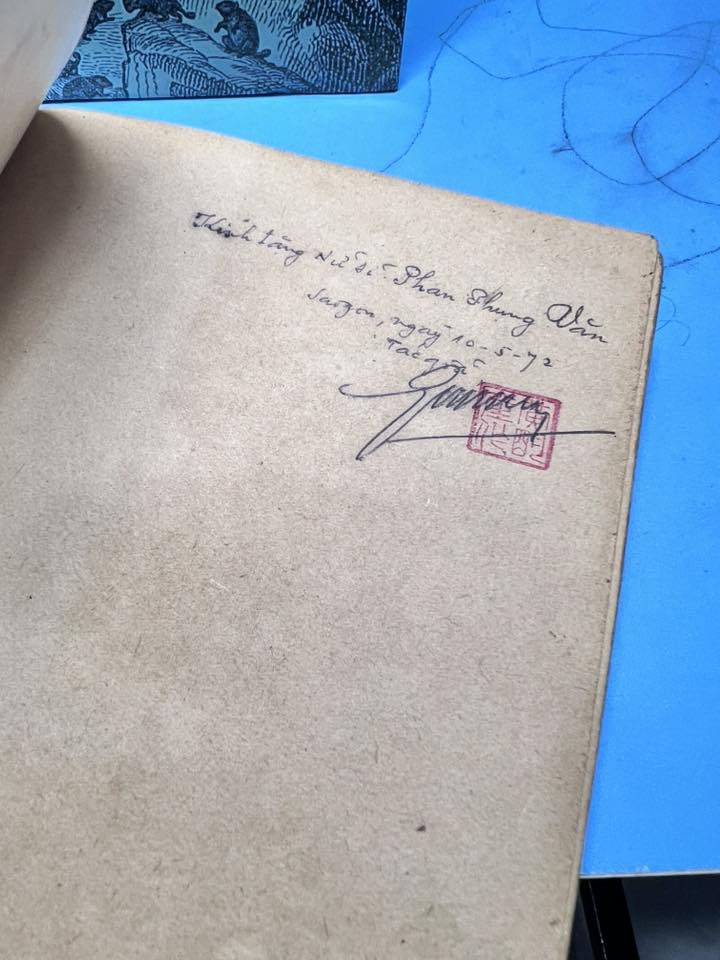 Kính tặng Nữ sĩ: Phan Phung Văn
Saigon, ngày 10-5-72
Tác giả